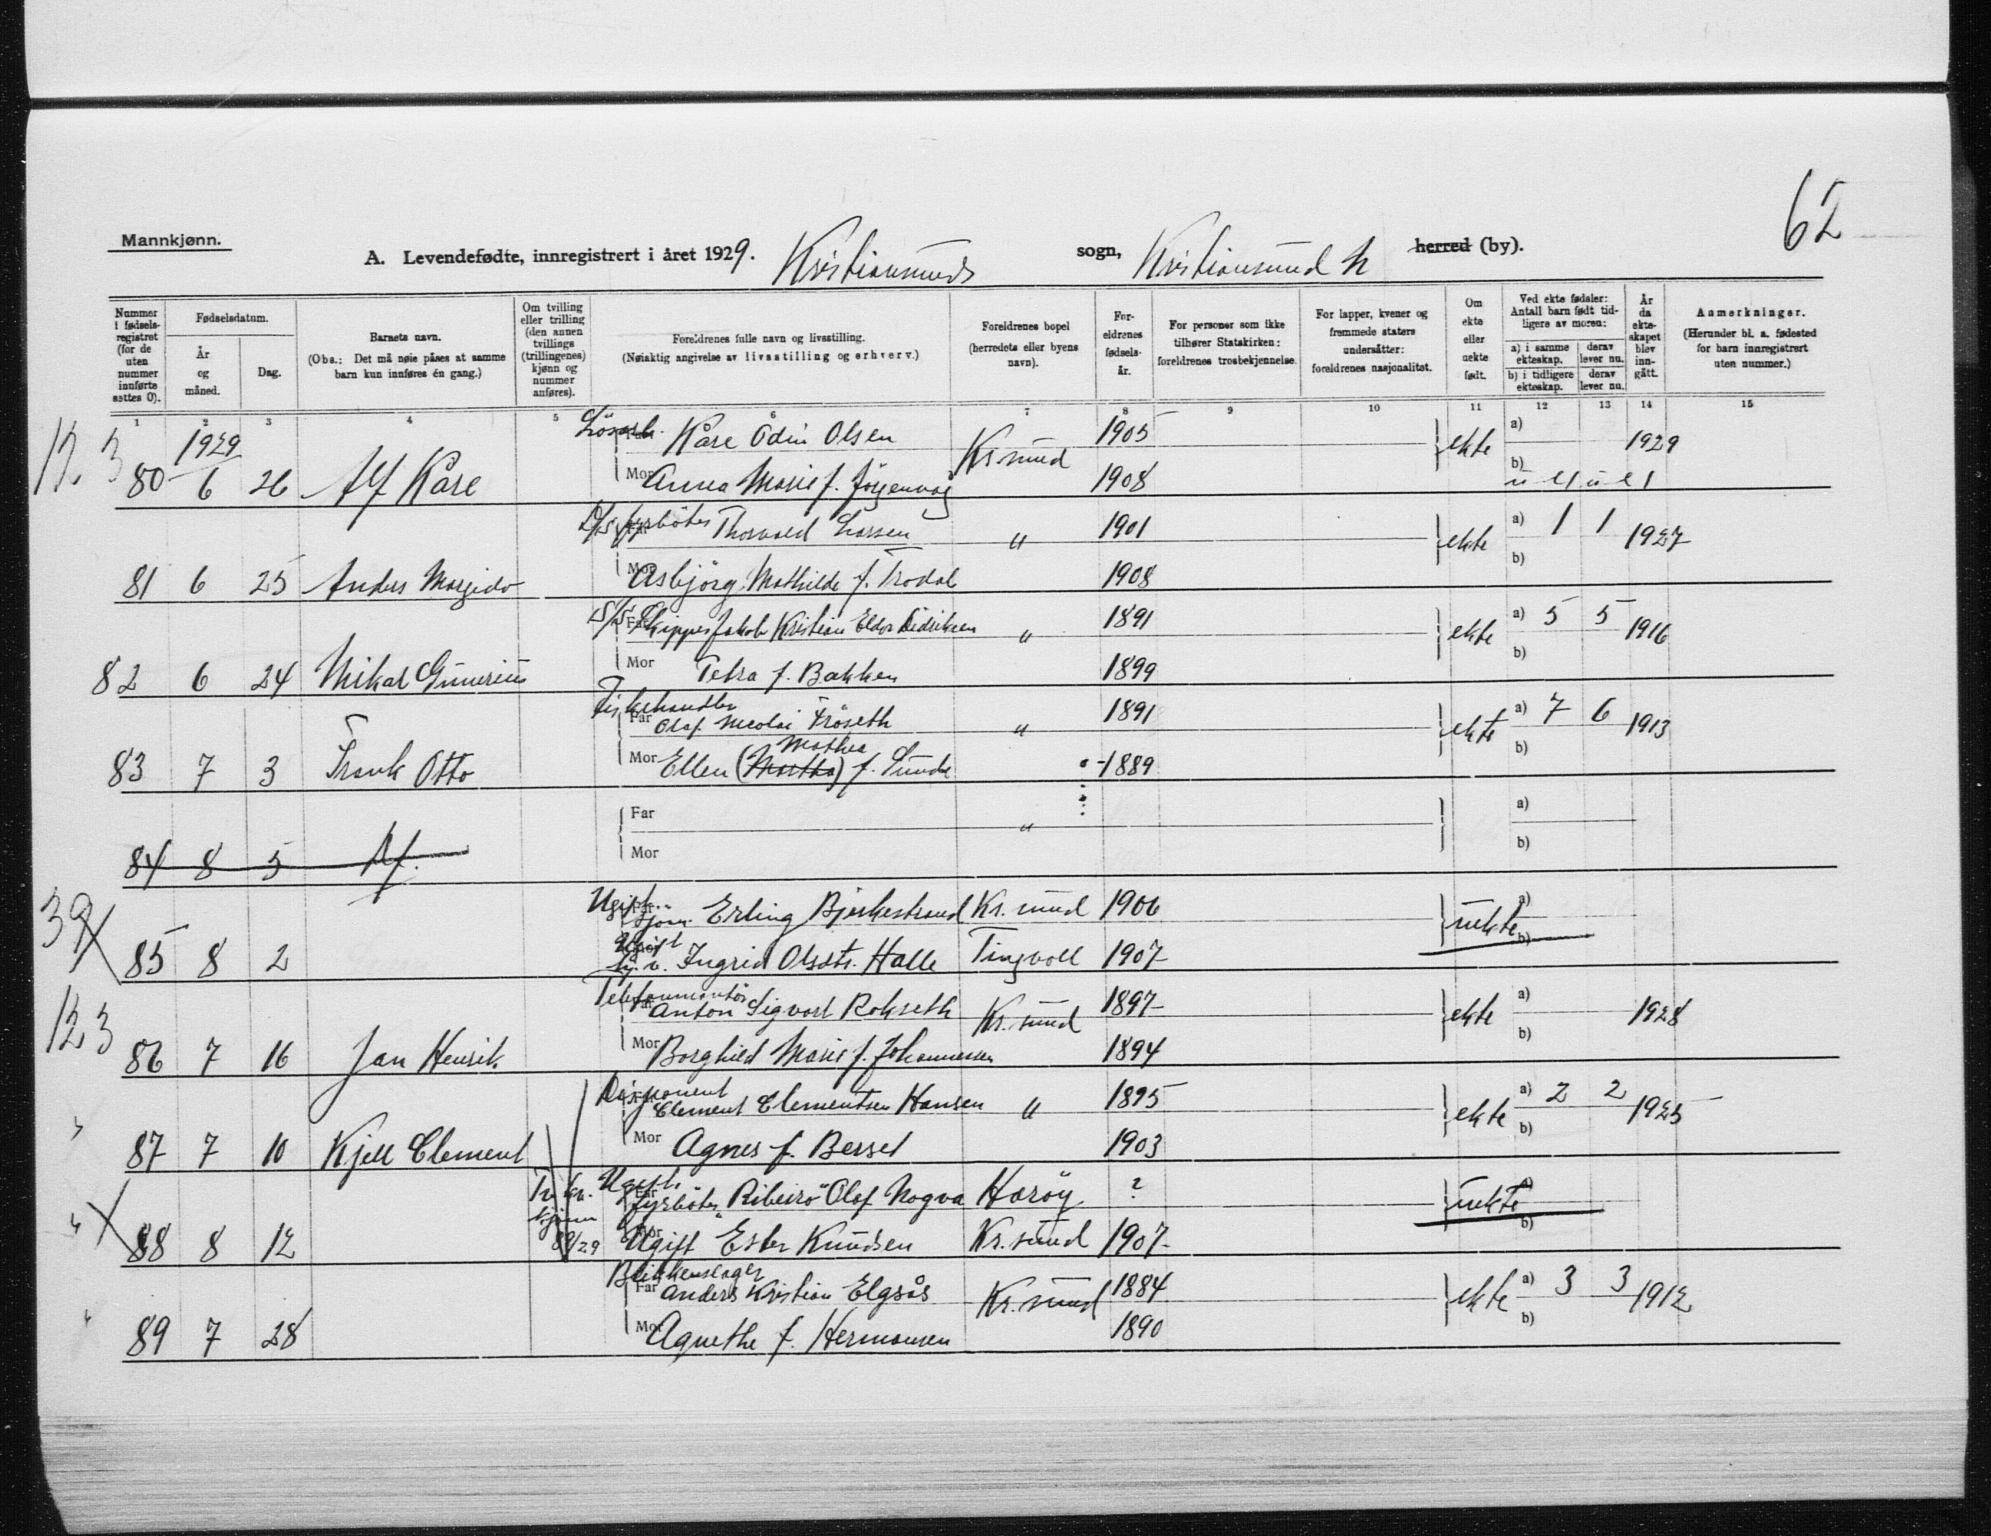 62
Mannkjønn.
A. Levendefødte, innregistrert i året 1929. Kristiansunds sogn, Kristiansund N herred (by).
Nummer i fødselsregistret (for de uten nummer innførte settes 0).
Fødselsdatum.
År og måned.
Dag.
Barnets navn.
(Obs.: Det må nøie påses at samme barn kun innføres én gang.)
Om tvilling eller trilling (den annen tvillings (trillingenes) kjønn og nummer anføres).
Foreldrenes fulle navn og livsstilling.
(Nøiaktig angivelse av livsstilling og erhverv.)
Foreldrenes bopel (herredets eller byens navn).
Foreldrenes fødselsår.
For personer som ikke tilhører Statskirken: foreldrenes trosbekjennelse.
For lapper, kvener og fremmede staters undersåtter: foreldrenes nasjonalitet.
Om ekte eller uekte født.
Ved ekte fødsler: Antall barn født tidligere av moren:
a) i samme ekteskap. derav lever nu.
b) i tidligere ekteskap. derav lever nu.
År da ekteskapet blev inngått.
Anmerkninger.
(Herunder bl. a. fødested for barn innregistrert uten nummer.)
1 2 3 4 5 6 7 8 9 10 11 12 13 14 15
12 3 80 1929 6 26 Alf Kåre Løsarb. Far Kåre Odin Olsen Kr.sund 1905 ekte a) 1929
Mor Anna Marie f. Jørgenvåg 1908 b)
81 6 25 Anders Margido D/S fyrbøter Far Thorvald Larsen " 1901 ekte a) 1 1 1927
Mor Asbjörg Mathilde f. Trodal 1908 b)
82 6 24 Mikal Gunerius Far Skipper Jakob Kristian Didriksen " 1891 ekte a) 5 5 1916
Mor Petra f. Bakken 1899 b)
83 7 3 Frank Otto Fiskehandler Far Olaf Nicolai Fröseth " 1891 ekte a) 7 6 1913
Mor Ellen (Martha) Mathea f. Sunde 1889 b)
84 8 5 Far " a)
Mor b)
39 85 8 2 Ugift Far sjøm. Erling Bjerkestrand Kr.sund 1906 uekte a)
Ugift Mor v. Ingrid Olsdtr. Halle Tingvoll 1907 b)
12 3 86 7 16 Jan Henrik Telefonmontør Far Anton Sigvart Rokseth Kr.sund 1897 ekte a) 1928
Mor Borghild Marie f. Johannessen 1894 b)
87 7 10 Kjell Clement Disponent Far Clement Clementsen Hansen " 1895 ekte a) 2 2 1925
Mor Agnes f. Berset 1903 b)
" 88 8 12 Tv. kv. kjønn 89/29 Ugift Far fyrbøter "Ribeiro" Olaf Nogva Harøy ? uekte a)
Mor Ugift Ester Knudsen Kr.sund 1907 b)
" 89 7 28 Blikkenslager Far Anders Kristian Elgsås Kr.sund 1884 ekte a) 3 3 1912
Mor Agnethe f. Hermansen 1890 b)